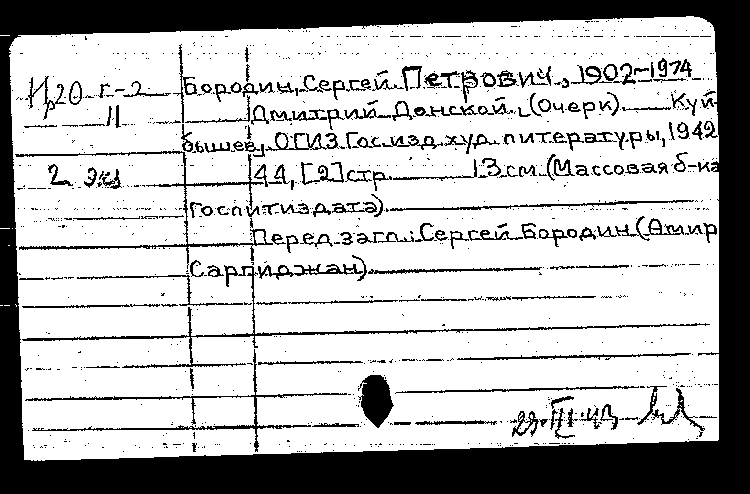 Бородин, Сергей Петрович, 1902-1974
Дмитрий Донской. (Очерк). Куй-
бышев, ОГИЗ Гос. изд. худ. литературы, 1942
44, [2] стр. 13 см (Массовая б-ка
Гослитиздата).
Перед загл.: Сергей Бородин (Амир
Саргиджан).
г-2
11
2 экз
23.III.43